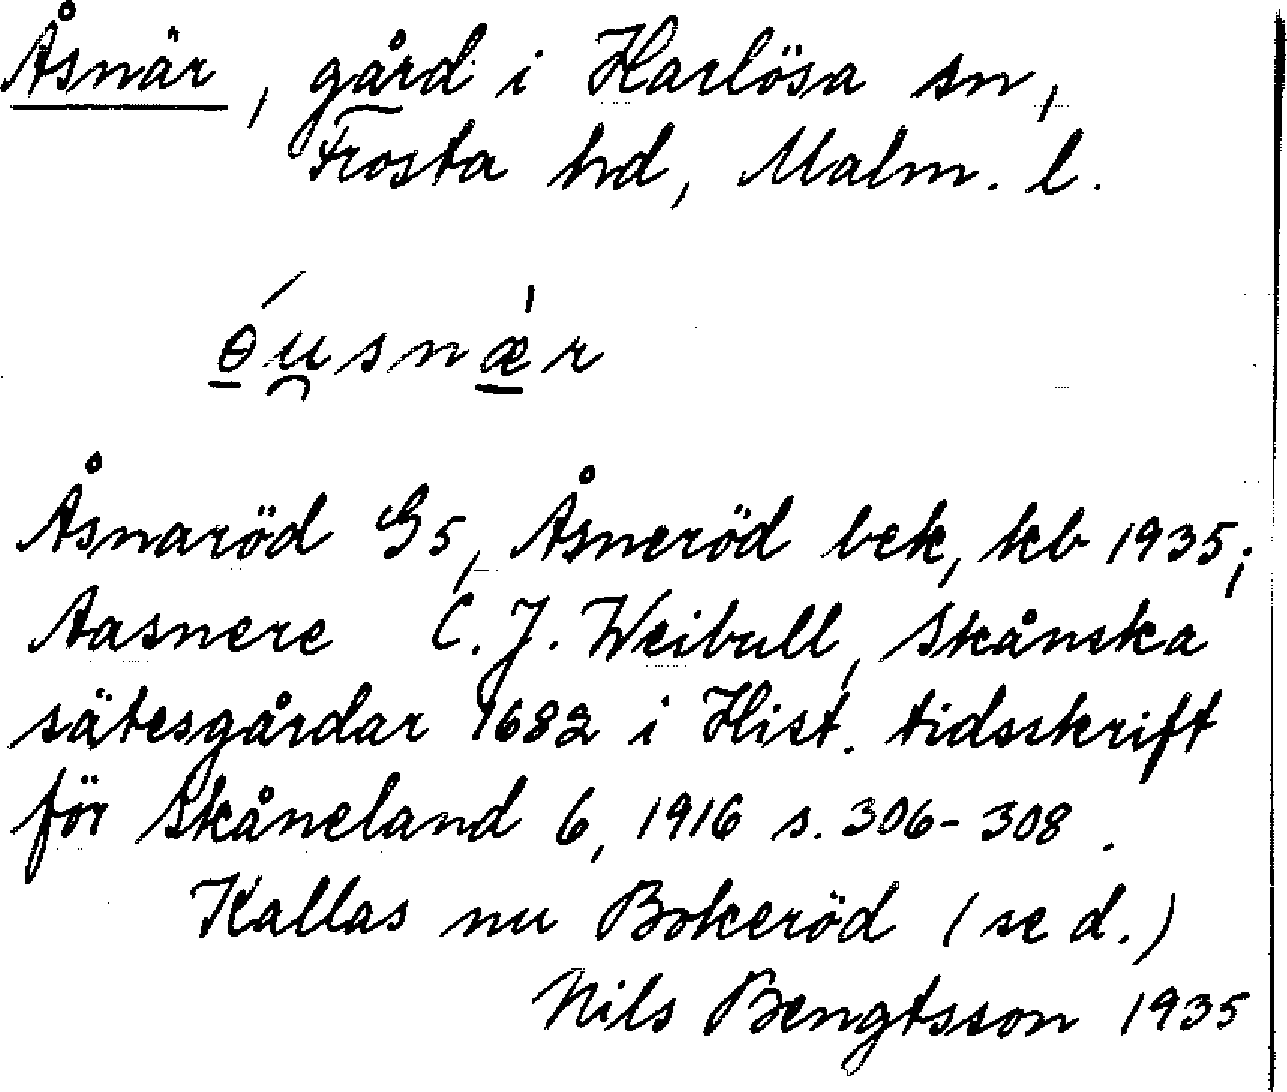 Åsnär, gård i Harlösa sn,
Frosta hd, Malm. l.
ɵ́u̯snæ̀r
Åsnaröd G5, Åsneröd bek, kb 1935;
Aasnere C. J. Weibull, Skånska
sätesgårdar 1682 i Hist. tidsskrift
för Skåneland 6, 1916 s. 306-308.
Kallas nu Bokeröd (se d.)
Nils Bengtsson 1935